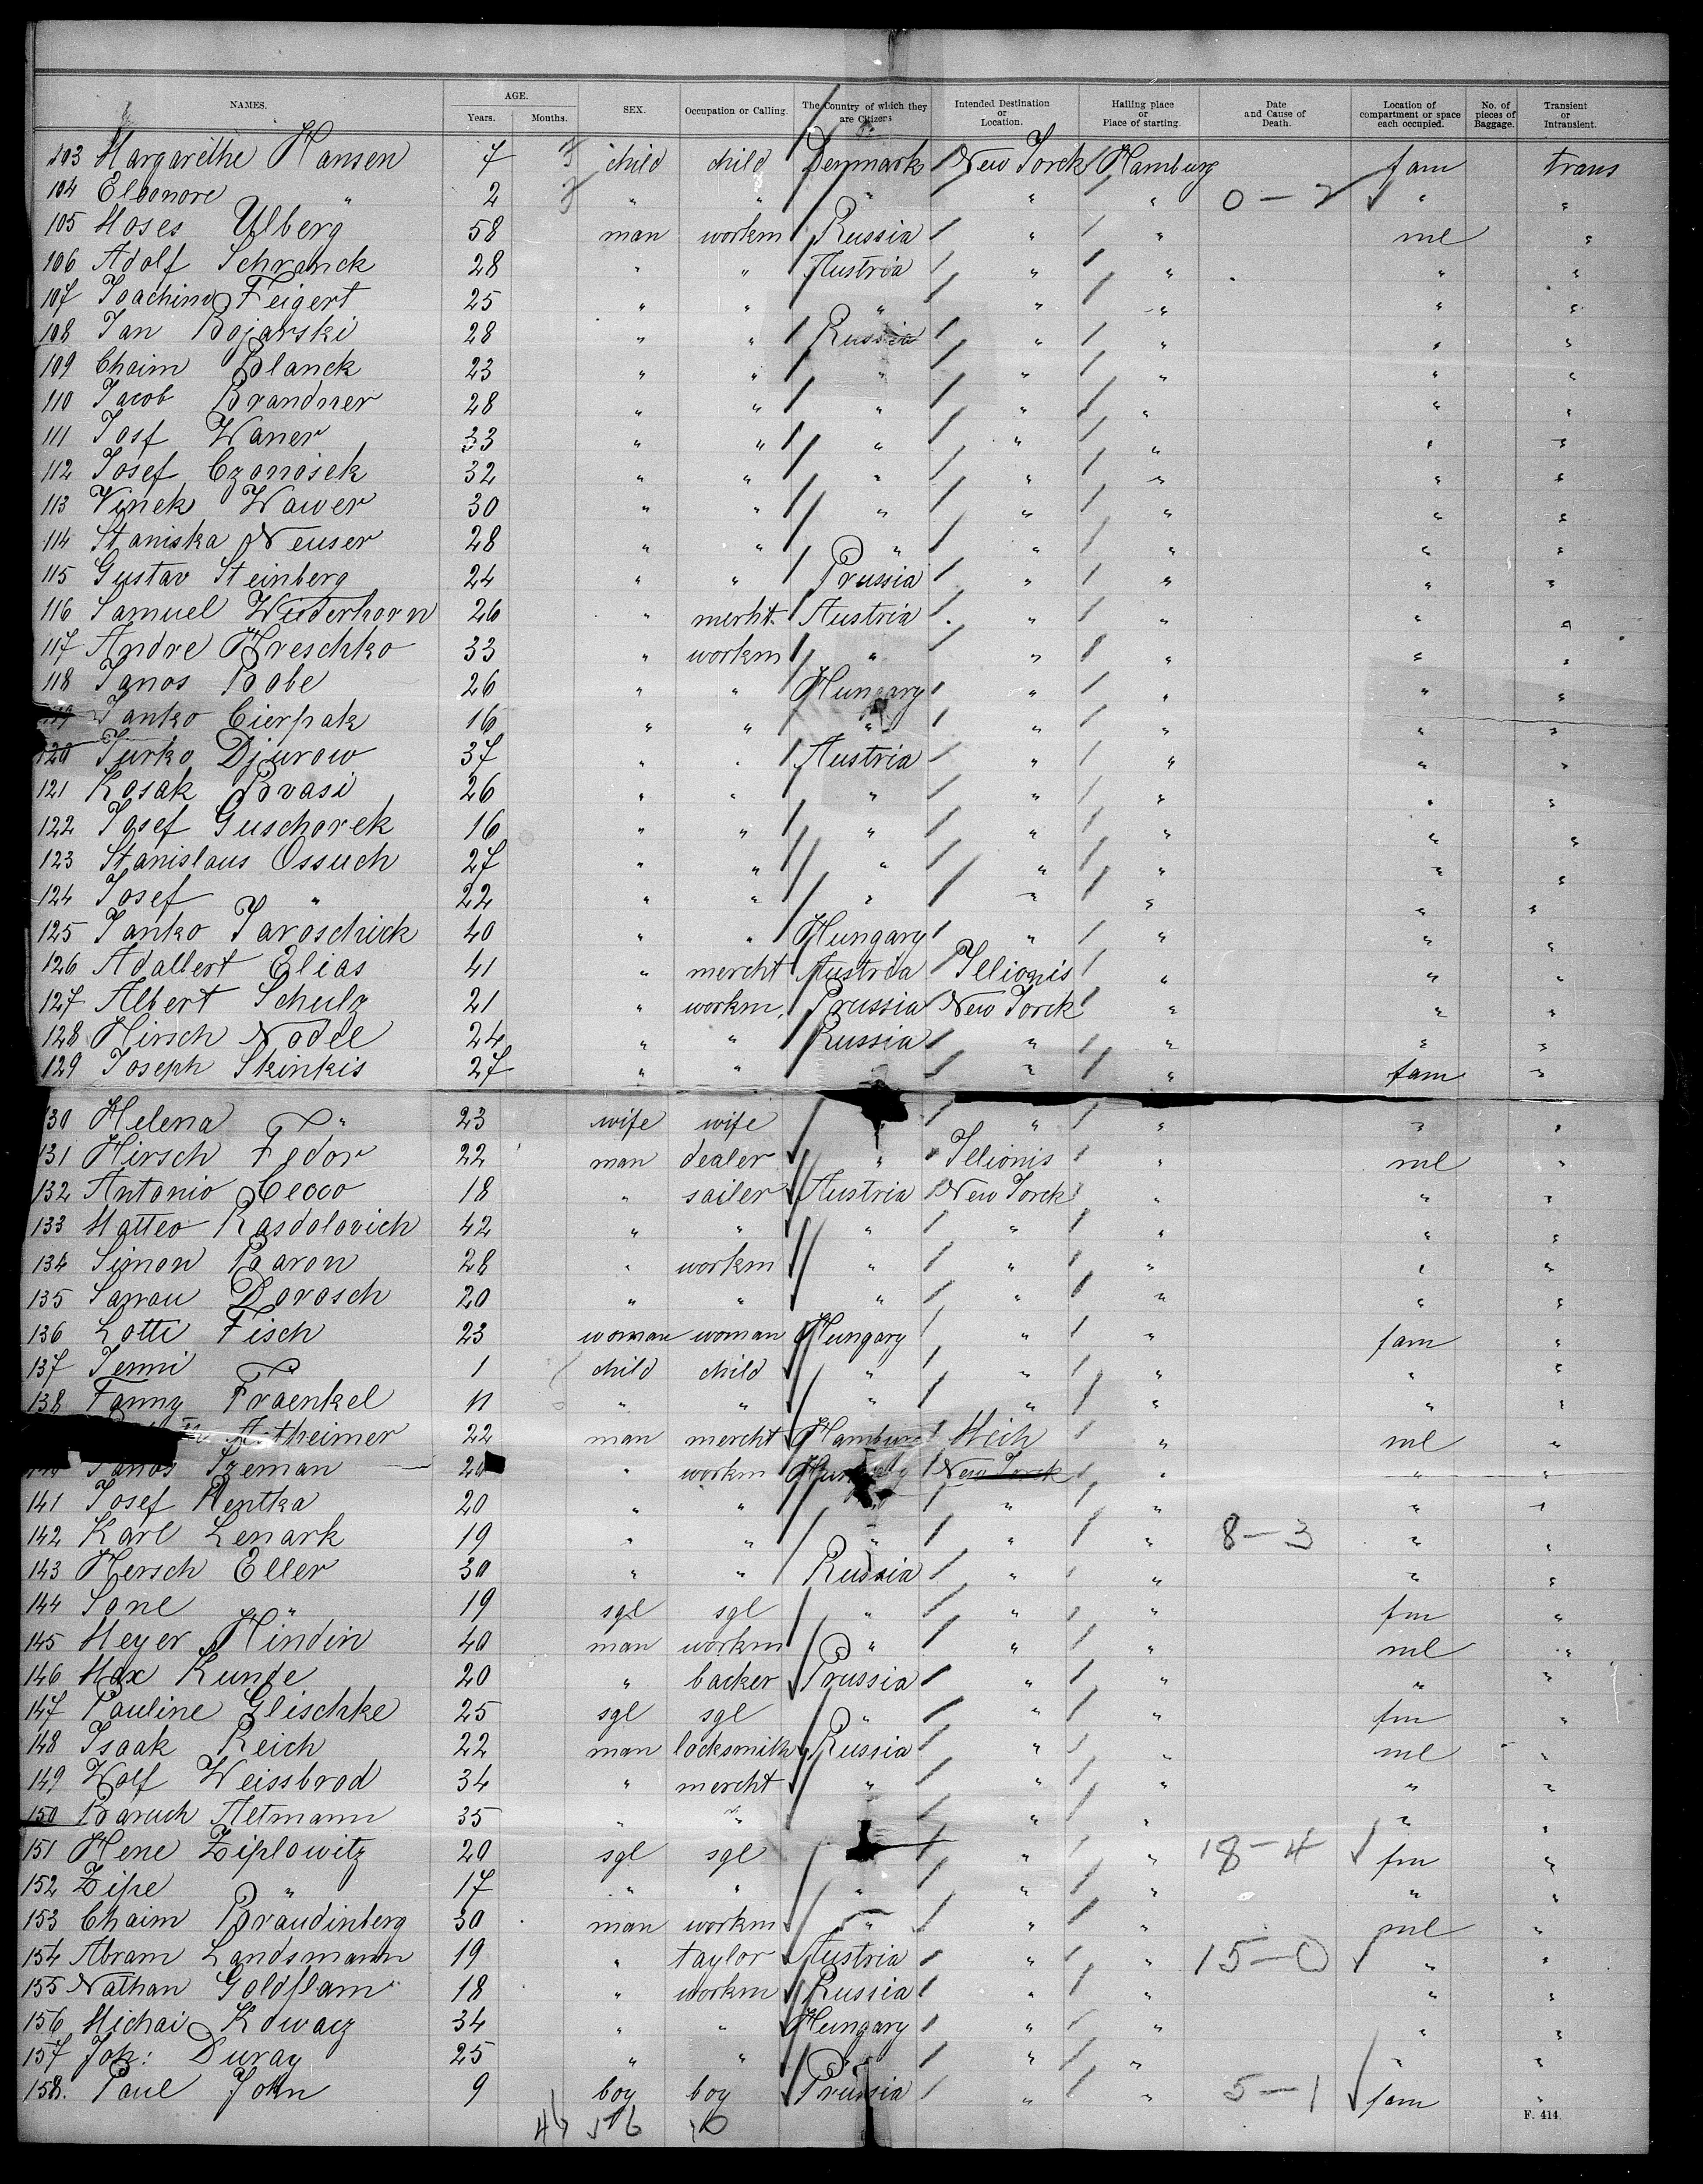 NAMES. AGE. Years. Months. SEX. Occupation or Calling. The Country of which they are Citizens Intended Destination or Location. Hailing place or Place of starting. Date and Cause of Death. Location of compartment or space each occupied. No. of pieces of Baggage. Transient or Intransient.
103 Margarethe Hansen 7 child child Denmark New Yorck Hamburg fam trans
104 Eleonore " 2 " " " " " 0-2 " "
105 Moses Ulberg 58 man workm Russia " " ml "
106 Adolf Schranck 28 " " Austria " " " "
107 Joachim Feigert 25 " " " " " " "
108 Jan Bojarski 28 " " Russia " " " "
109 Chaim Blanck 23 " " " " " " "
110 Jacob Brandner 28 " " " " " " "
111 Josf Waner 33 " " " " " " "
112 Josef Czonosek 32 " " " " " " "
113 Vinek Wawer 30 " " " " " " "
114 Staniska Neuser 28 " " " " " " "
115 Gustav Steinberg 24 " " Prussia " " " "
116 Samuel Wiederhorn 26 " merht. Austria " " " "
117 Andre Hreschko 33 " workm " " " " "
118 Janos Bobe 26 " " Hungary " " " "
119 Janko Cierpak 16 " " " " " " "
120 Jurko Djurow 37 " " Austria " " " "
121 Kosak Bvasi 26 " " " " " " "
122 Josef Guschorek 16 " " " " " " "
123 Stanislaus Ossuch 27 " " " " " " "
124 Josef " 22 " " " " " " "
125 Janko Jaroschick 40 " " Hungary " " " "
126 Adalbert Elias 41 " mercht Austria Illionis " " "
127 Albert Schulz 21 " workm. Prussia New Yorck " " "
128 Hirsch Nodel 24 " " Russia " " " "
129 Joseph Skinkis 27 " " " " " fam "
130 Helena " 23 wife wife " " " " "
131 Hirsch Fedor 22 man dealer " Illionis " ml "
132 Antonio Cecco 18 " sailer Austria New Yorck " " "
133 Matteo Rasdolovich 42 " " " " " " "
134 Simon Baron 28 " workm " " " " "
135 Sawau Dorosch 20 " " " " " " "
136 Lotti Fisch 23 woman woman Hungary " " fam "
137 Jenni " 1 child child " " " " "
138 Fanny Fraenkel 11 " " " " " " "
Artheimer 22 man mercht Hamburg Mich " ml "
Janos Szeman " workm New Yorck " " "
141 Josef Hentka 20 " " " " " " "
142 Karl Lenark 19 " " " " " 8-3 " "
143 Hersch Eller 30 " " Russia " " " "
144 Sone " 19 sgl sgl " " " fm "
145 Meyer Hindin 40 man workm " " " ml "
146 Max Kunde 20 " backer Prussia " " " "
147 Pauline Glischke 25 sgl sgl " " " fm "
148 Isaak Reich 22 man locksmith Russia " " ml "
149 Wolf Weissbrod 34 " mercht " " " " "
150 Baruch Altmann 35 " " " " " "
151 Hene Ziplowitz 20 sgl sgl " " 18-4 fm "
152 Zipe " 17 " " " " " " "
153 Chaim Braudinberg 30 man workm " " " ml "
154 Abram Landsmann 19 " taylor Austria " " 15-0 " "
155 Nathan Goldflam 18 " workm Russia " " " "
156 Michai Kowacz 34 " " Hungary " " " "
157 Joh: Duray 25 " " " " " " "
158. Paul John 9 boy boy Prussia " " 5-1 fam "
F. 414